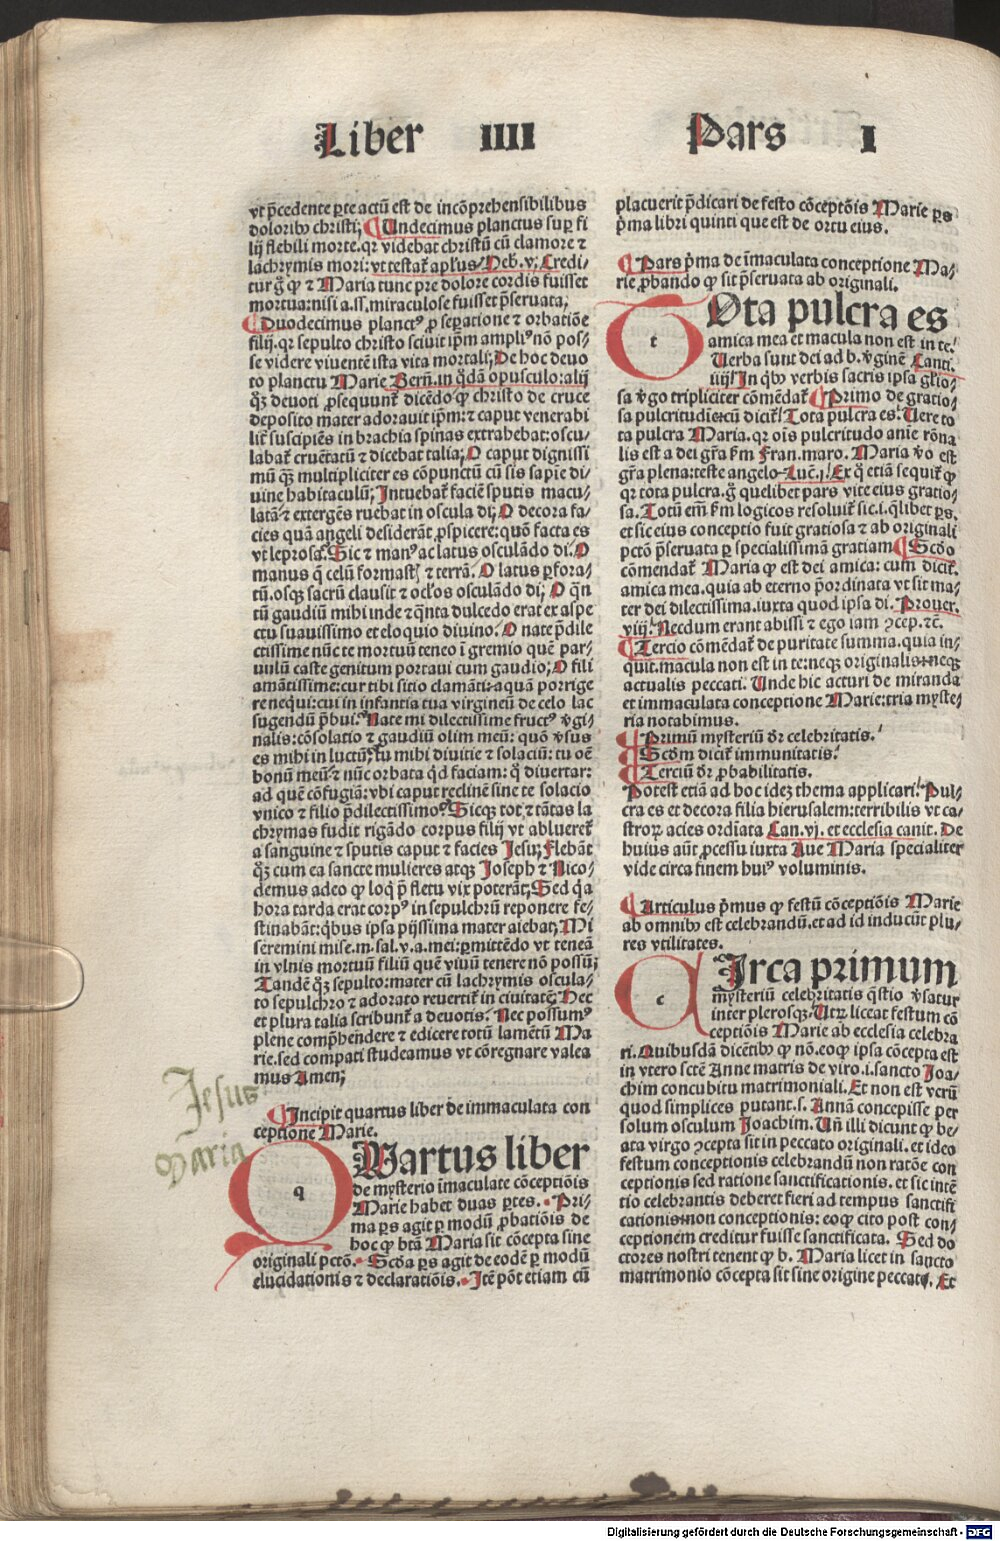 Liber IIII Pars I
vt p̄cedente ꝑte actū est de incōprehensibilibus
doloribꝰ christi; ¶ Undecimus planctus suꝑ fi⸗
lij flebili morte. qr videbat christū cū clamore ⁊
lachrymis mori: vt testat᷑ apl'us Heb. v; Credi⸗
tur g̊ ꝙ ⁊ Maria tunc pre dolore cordis fuisset
mortua: nisi a. ss. miraculose fuisset p̄seruata;
¶ Duodecimus planctꝰ ꝓ seꝑatione ⁊ orbatiōe
filij. qr sepulto christo sciuit ip̄m ampliꝰ nō pos⸗
se videre viuentē ista vita mortali; De hoc deuo
to planctu Marie Bern̄. in q̊dā opusculo: alij
qꝫ deuoti ꝓsequunt᷑ dicēdo ꝙ christo de cruce
deposito mater adorauit ip̄m: ⁊ caput venerabi
lit᷑ suscipiēs in brachia spinas extrahebat: oscu⸗
labat᷑ cruētatū ⁊ dicebat talia; O caput dignissi
mū qꝫ multipliciter es cōpunctū cū sis sapiē di⸗
uine habitaculū; Intuebat᷑ faciē sputis macu⸗
latā ⁊ extergēs ruebat in oscula di; O decora fa⸗
cies quā angeli desiderāt ꝓspicere: quō facta es
vt leprosa. Sic ⁊ manꝰ ac latus osculādo di. O
manus q̄ celū formast᷑ ⁊ terrā. O latus ꝑfora⸗
tū. osqꝫ sacrū clausit ⁊ oc'los osculādo di; O q̄n
tū gaudiū mihi inde ⁊ q̄nta dulcedo erat ex aspe
ctu suauissimo et eloquio diuino. O nate p̄dile
ctissime nūc te mortuū teneo ī gremio quē par⸗
uulū caste genitum portaui cum gaudio; O fili
amātissime: cur tibi sitio clamāti: aquā porrige
re nequi: cui in infantia tua virgineū de celo lac
sugendū p̄bui. Nate mi dilectissime fructꝰ v̄gi⸗
nalis: cōsolatio ⁊ gaudiū olim meū: quō v̄sus
es mihi in luctū; tu mihi diuitie ⁊ solaciū: tu oē
bonū meū ⁊ nūc orbata q̊d faciam: q̊ diuertar:
ad quē cōfugiā: vbi caput reclinē sine te solacio
vnico ⁊ filio p̄dilectissimo. Sicqꝫ tot ⁊ tātas la
chrymas fudit rigādo corpus filij vt abluere᷑t
a sanguine ⁊ sputis caput ⁊ facies Jesu; Flebāt
qꝫ cum ea sancte mulieres atqꝫ Joseph ⁊ Nico⸗
demus adeo ꝙ loq̇ p̄ fletu vix poterāt; Sed q̇a
hora tarda erat corpꝰ in sepulchrū reponere fe⸗
stinabāt: q̇bus ipsa pijssima mater aiebat; Mi
seremini mise. m. sal. v. a. mei: ꝑmittēdo vt teneā
in vlnis mortuū filiū quē viuū tenere nō possū;
Tandē qꝫ sepulto: mater cū lachrymis oscula⸗
to sepulchro ⁊ adorato reuertit᷑ in ciuitatē; Hec
et plura talia scribunt᷑ a deuotis. Nec possumꝰ
plene comp̄hēdere ⁊ edicere totū lamētū Ma
rie. sed compati studeamus vt cōregnare valea
mus Amen;
Jesus
Maria
¶ Incipit quartus liber de immaculata con
ceptione Marie.
q Wartus liber
de mysterio īmaculate cōceptiōis
Marie habet duas ꝑtes. Pri⸗
ma ꝑs agit ꝑ modū ꝓbatiōis de
hoc ꝙ btā Maria sit cōcepta sine
originali pctō. Scd̄a ꝑs agit de eodē ꝑ modū
elucidationis ⁊ declaratiōis. Itē pōt etiam cū
placuerit p̄dicari de festo cōceptōis Marie ꝑs
p̄ma libri quinti que est de ortu eius.
¶ Pars p̄ma de īmaculata conceptione Ma⸗
rie ꝓbando ꝙ sit p̄seruata ab originali.
t Ota pulcra es
amica mea et macula non est in te.
Uerba sunt dei ad b. v̄ginē Canti.
iiij. In qbꝰ verbis sacris ipsa glio⸗
sa v̄go tripliciter cōmēdat᷑ ¶ Primo de gratio⸗
sa pulcritudie cū dicit᷑. Tota pulcra es. Uere to
ta pulcra Maria. qr oīs pulcritudo anīe rōna
lis est a dei gr̄a ẜm Fran. maro. Maria v̄o est
gr̄a plena: teste angelo Luc̄. j. Ex q̊ etiā sequit᷑ ꝙ
qr tota pulcra. g̊ quelibet pars vite eius gratio⸗
sa. Totū em̄ ẜm logicos resoluit᷑ sic. i. q̄libet ꝑs.
et sic eius conceptio fuit gratiosa ⁊ ab originali
pctō p̄seruata ꝑ specialissimā gratiam ¶ Scd̄o
cōmendat᷑ Maria ꝙ est dei amica: cum dicit᷑.
amica mea. quia ab eterno p̄ordinata vt sit ma⸗
ter dei dilectissima. iuxta quod ipsa di. Prouer.
viij. Necdum erant abissi ⁊ ego iam ꝯcep. ⁊c̄.
¶ Tercio cōmēdat᷑ de puritate summa. quia in⸗
quit. macula non est in te: neqꝫ originalis neqꝫ
actualis peccati. Unde hic acturi de miranda
et immaculata conceptione Marie: tria myste⸗
ria notabimus.
¶ Primū mysteriū dr̄ celebritatis.
¶ Scd̄m dicit᷑ immunitatis.
¶ Terciū dr̄ ꝓbabilitatis.
Potest etiā ad hoc idē thema applicari. Pul⸗
cra es et decora filia hierusalem: terribilis vt ca⸗
stroꝝ acies ordīata Can. vj. et ecclesia canit. De
huius aūt ꝓcessu iuxta Aue Maria specialiter
vide circa finem huiꝰ voluminis.
¶ Articulus p̄mus ꝙ festū cōceptiōis Marie
ab omnibꝰ est celebrandū. et ad id inducūt plu⸗
res vtilitates.
c Irca primum
mysteriū celebritatis q̄stio v̄satur
inter plerosqꝫ. Utꝝ liceat festum cō
ceptiōis Marie ab ecclesia celebra
ri. Quibusdā dicētibꝰ ꝙ nō. eoꝙ ipsa cōcepta est
in vtero sctē Anne matris de viro. i. sancto Joa⸗
chim concubitu matrimoniali. Et non est verū
quod simplices putant. s. Annā concepisse per
solum osculum Joachim. Uñ illi dicunt ꝙ be⸗
ata virgo ꝯcepta sit in peccato originali. et ideo
festum conceptionis celebrandū non ratōe con
ceptionis sed ratione sanctificationis. et sic intē
tio celebrantis deberet fieri ad tempus sanctifi
cationis non conceptionis: eoꝙ cito post con⸗
ceptionem creditur fuisse sanctificata. Sed do
ctores nostri tenent ꝙ b. Maria licet in sancto
matrimonio cōcepta sit sine origine peccati. Et
Digitalisierung gefördert durch die Deutsche Forschungsgemeinschaft - DFG